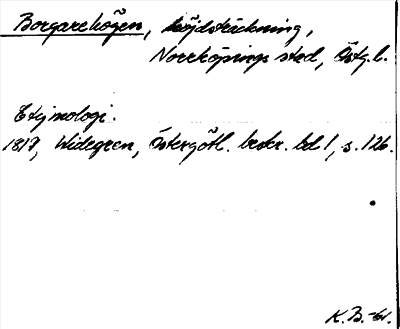 Borgarehögen, höjdsträckning,
Norrköpings stad, Östg.l.
Etymologi.
1817, Widegren, Östergötl. beskr. bd 1, s. 126.
K.B.-61.